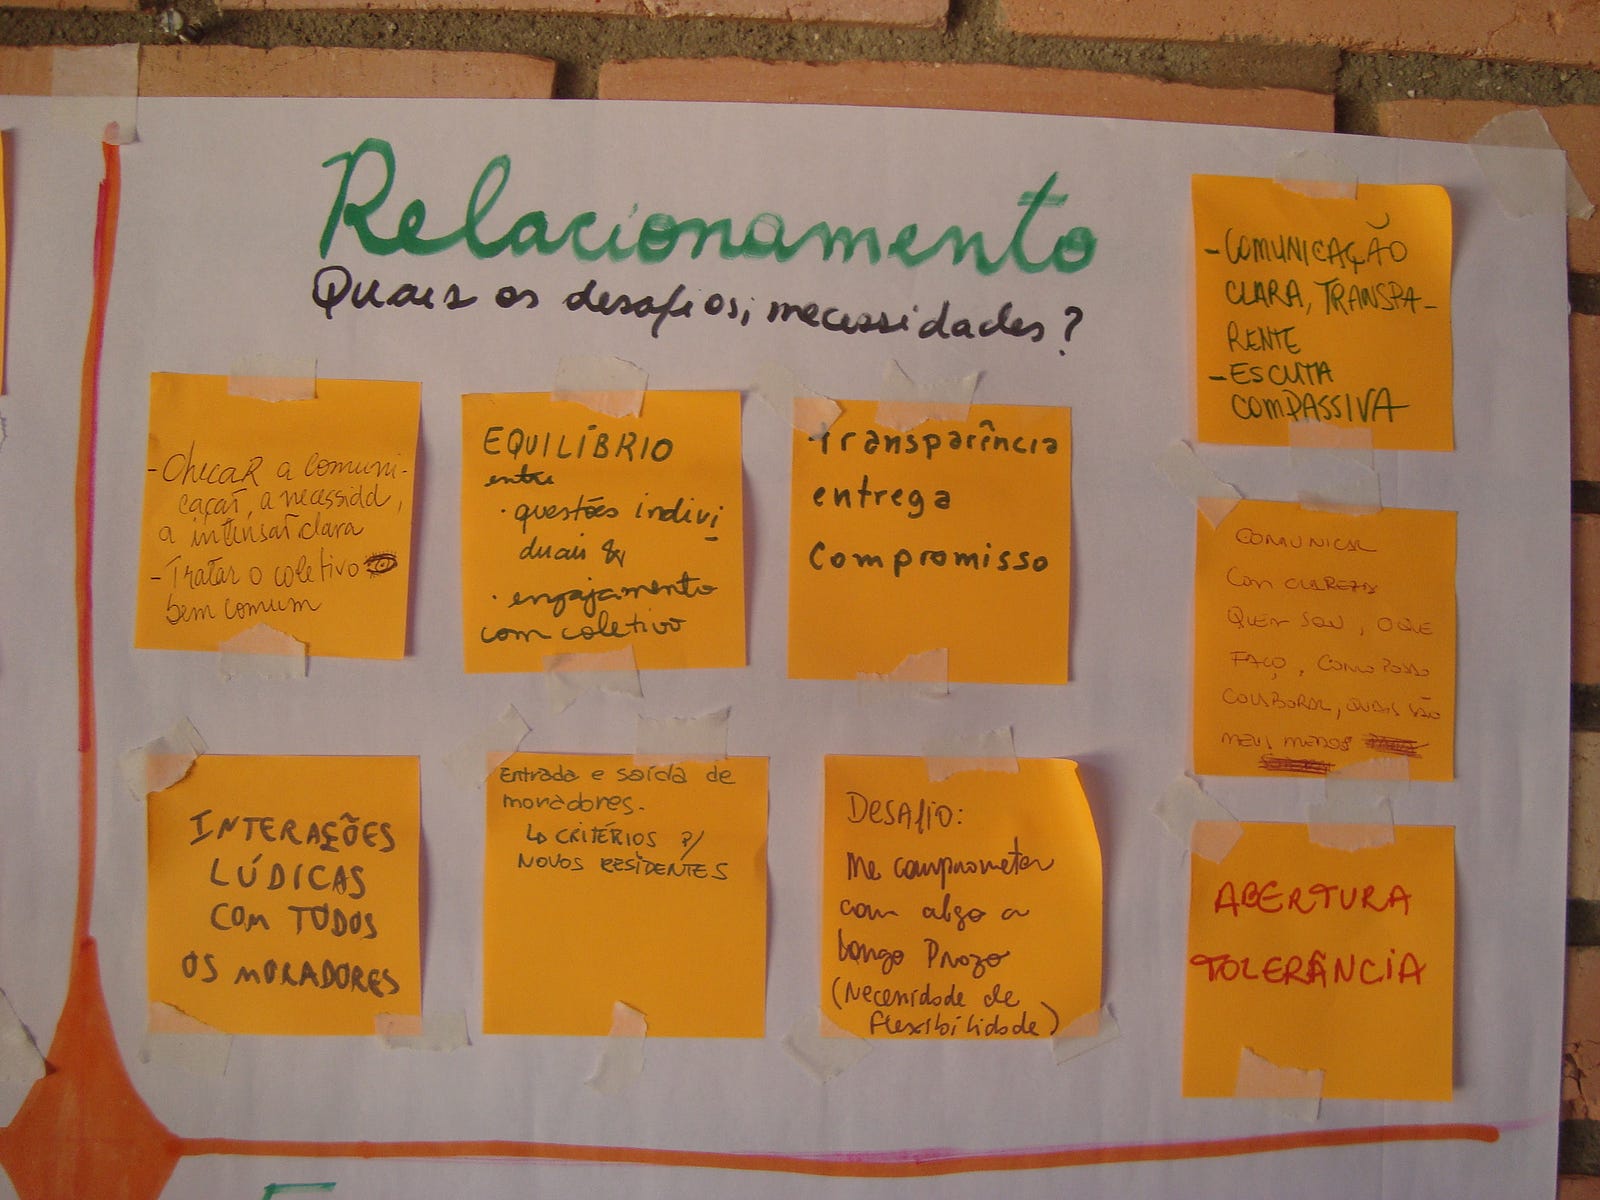 Relacionamento
Quais os desafios, necessidades?
- COMUNICAÇÃO
CLARA, TRANSPA-
RENTE
- ESCUTA
COMPASSIVA
- Checar a comuni-
cação, a necessidd,
a intensão clara
- Tratar o coletivo
bem comum
EQUILÍBRIO
entre
· questões indivi
duais &
· engajamento
com coletivo
Transparência
entrega
Compromisso
COMUNICAR
COM CLAREZA
QUEM SOU, O QUE
FAÇO, COMO POSSO
COLABORAR, QUAIS SÃO
MEUS
INTERAÇÕES
LÚDICAS
COM TODOS
OS MORADORES
Entrada e saída de
moradores.
↳ CRITÉRIOS P/
NOVOS RESIDENTES
DESAFIO:
Me comprometer
com algo a
longo Prazo
(Necessidade de
flexibilidade)
ABERTURA
TOLERÂNCIA